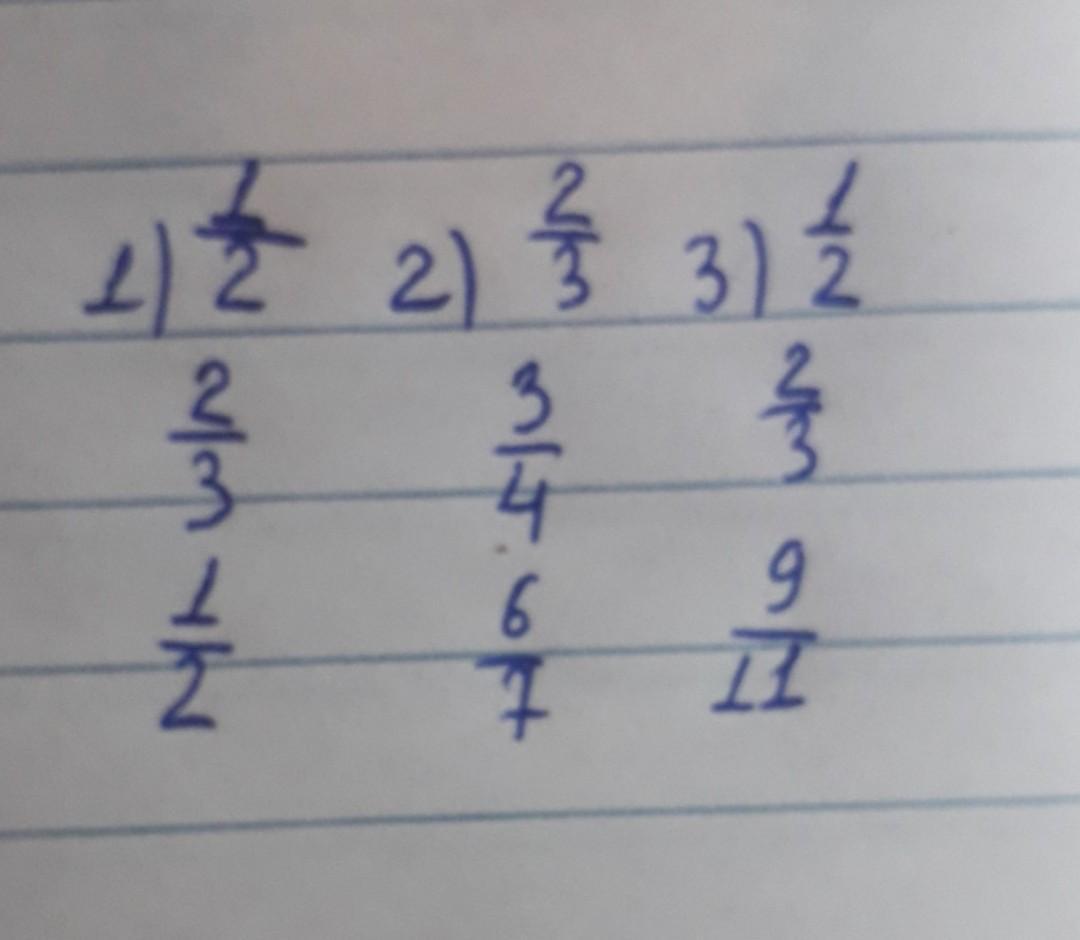 1) 1/2 2) 2/3 3) 1/2
2/3 3/4 2/3
1/2 6/7 9/11